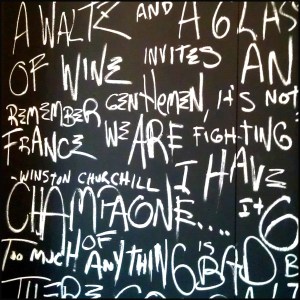 A WALTZ AND A GLAS
OF WINE INVITES AN
REMEMBER GENTLEMEN, IT'S NOT
FRANCE WE ARE FIGHTING
-WINSTON CHURCHILL I HAVE
CHAMPAGNE.... It G
TOO MUCH OF ANYTHING IS BAD B